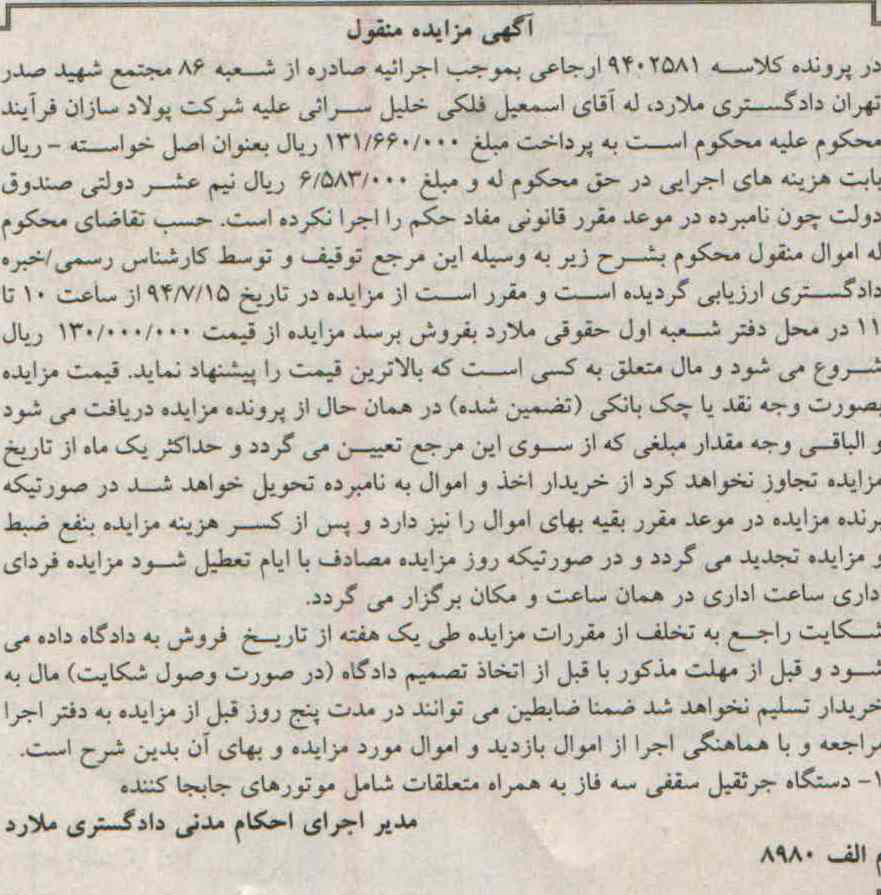 آگهی مزایده منقول
در پرونده کلاسه ۹۴۰۲۵۸۱ ارجاعی بموجب اجرائیه صادره از شعبه ۸۶ مجتمع شهید صدر
تهران دادگستری ملارد، له آقای اسمعیل فلکی خلیل سرائی علیه شرکت پولاد سازان فرآیند
محکوم علیه محکوم است به پرداخت مبلغ ۱۳۱/۶۶۰/۰۰۰ ریال بعنوان اصل خواسته - ریال
بابت هزینه های اجرایی در حق محکوم له و مبلغ ۶/۵۸۳/۰۰۰ ریال نیم عشر دولتی صندوق
دولت چون نامبرده در موعد مقرر قانونی مفاد حکم را اجرا نکرده است. حسب تقاضای محکوم
له اموال منقول محکوم بشرح زیر به وسیله این مرجع توقیف و توسط کارشناس رسمی/خبره
دادگستری ارزیابی گردیده است و مقرر است از مزایده در تاریخ ۹۴/۷/۱۵ از ساعت ۱۰ تا
۱۱ در محل دفتر شعبه اول حقوقی ملارد بفروش برسد مزایده از قیمت ۱۳۰/۰۰۰/۰۰۰ ریال
شروع می شود و مال متعلق به کسی است که بالاترین قیمت را پیشنهاد نماید. قیمت مزایده
بصورت وجه نقد یا چک بانکی (تضمین شده) در همان حال از پرونده مزایده دریافت می شود
و الباقی وجه مقدار مبلغی که از سوی این مرجع تعیین می گردد و حداکثر یک ماه از تاریخ
مزایده تجاوز نخواهد کرد از خریدار اخذ و اموال به نامبرده تحویل خواهد شد در صورتیکه
برنده مزایده در موعد مقرر بقیه بهای اموال را نیز دارد و پس از کسر هزینه مزایده بنفع ضبط
و مزایده تجدید می گردد و در صورتیکه روز مزایده مصادف با ایام تعطیل شود مزایده فردای
داری ساعت اداری در همان ساعت و مکان برگزار می گردد.
شکایت راجع به تخلف از مقررات مزایده طی یک هفته از تاریخ فروش به دادگاه داده می
شود و قبل از مهلت مذکور با قبل از اتخاذ تصمیم دادگاه (در صورت وصول شکایت) مال به
خریدار تسلیم نخواهد شد ضمنا ضابطین می توانند در مدت پنج روز قبل از مزایده به دفتر اجرا
مراجعه و با هماهنگی اجرا از اموال بازدید و اموال مورد مزایده و بهای آن بدین شرح است.
۱- دستگاه جرثقیل سقفی سه فاز به همراه متعلقات شامل موتورهای جابجا کننده
مدیر اجرای احکام مدنی دادگستری ملارد
م الف ۸۹۸۰